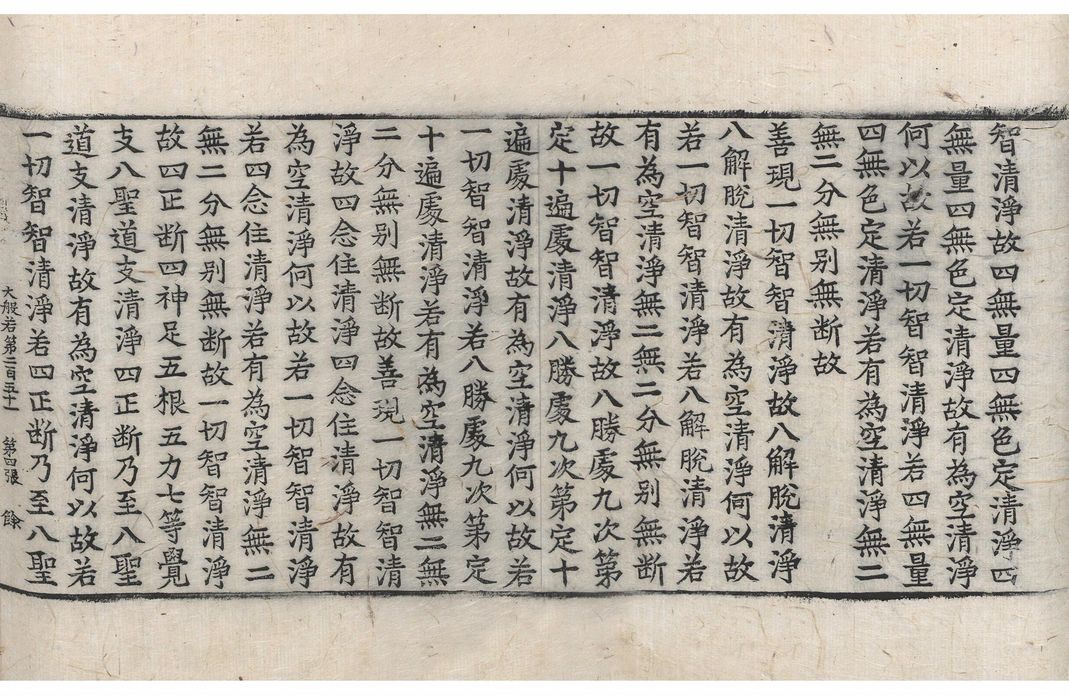 智清淨故四無量四無色定清淨四
無量四無色定清淨故有為空清淨
何以故若一切智智清淨若四無量
四無色定清淨若有為空清淨無二
無二分無别無断故
善現一切智智清淨故八解脫清淨
八解脫清淨故有為空清淨何以故
若一切智智清淨若八解脫清淨若
有為空清淨無二無二分無别無断
故一切智智清淨故八勝處九次第
定十遍處清淨八勝處九次第定十
遍處清淨故有為空清淨何以故若
一切智智清淨若八勝處九次第定
十遍處清淨若有為空清淨無二無
二分無别無断故善現一切智智清
淨故四念住清淨四念住清淨故有
為空清淨何以故若一切智智清淨
若四念住清淨若有為空清淨無二
無二分無别無断故一切智智清淨
故四正断四神足五根五力七等覺
支八聖道支清淨四正断乃至八聖
道支清淨故有為空清淨何以故若
一切智智清淨若四正断乃至八聖
大般若第二百五十一 第四張 餘